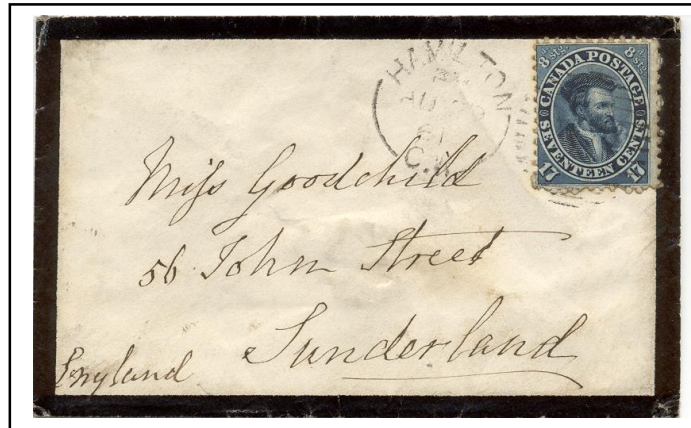 HAMILTON
AU
61
C.W
8 stg. 8 stg.
CANADA POSTAGE
SEVENTEEN CENTS
17 17
Miss Goodchild
56 John Street
Sunderland
England